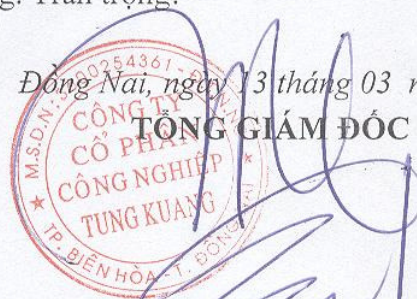 Trân trọng.
Đồng Nai, ngày 13 tháng 03
TỔNG GIÁM ĐỐC
CÔNG TY
CỔ PHẦN
CÔNG NGHIỆP
TUNG KUANG
TP. BIÊN HÒA - T. ĐỒNG NAI